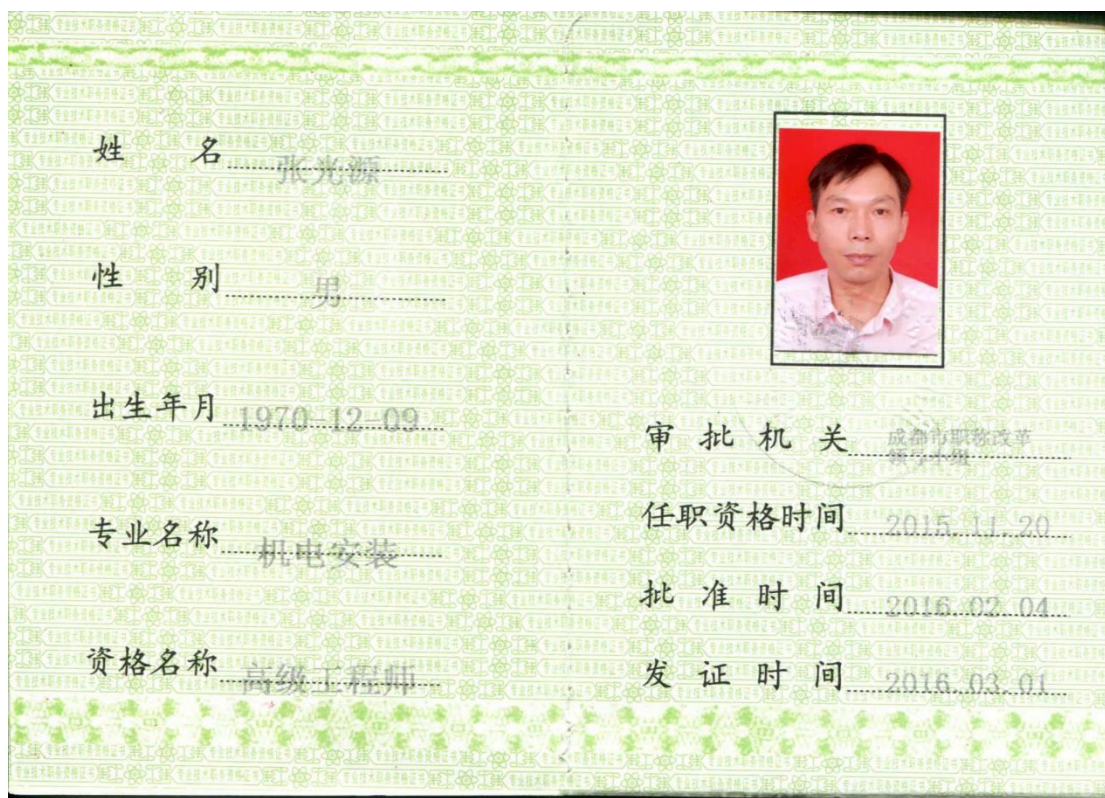 姓 名 张光源
性 别 男
出生年月 1970-12-09
专业名称 机电安装
资格名称 高级工程师
审 批 机 关 成都市职称改革
领导小组
任职资格时间 2015.11.20
批 准 时 间 2016.02.04
发 证 时 间 2016.03.01